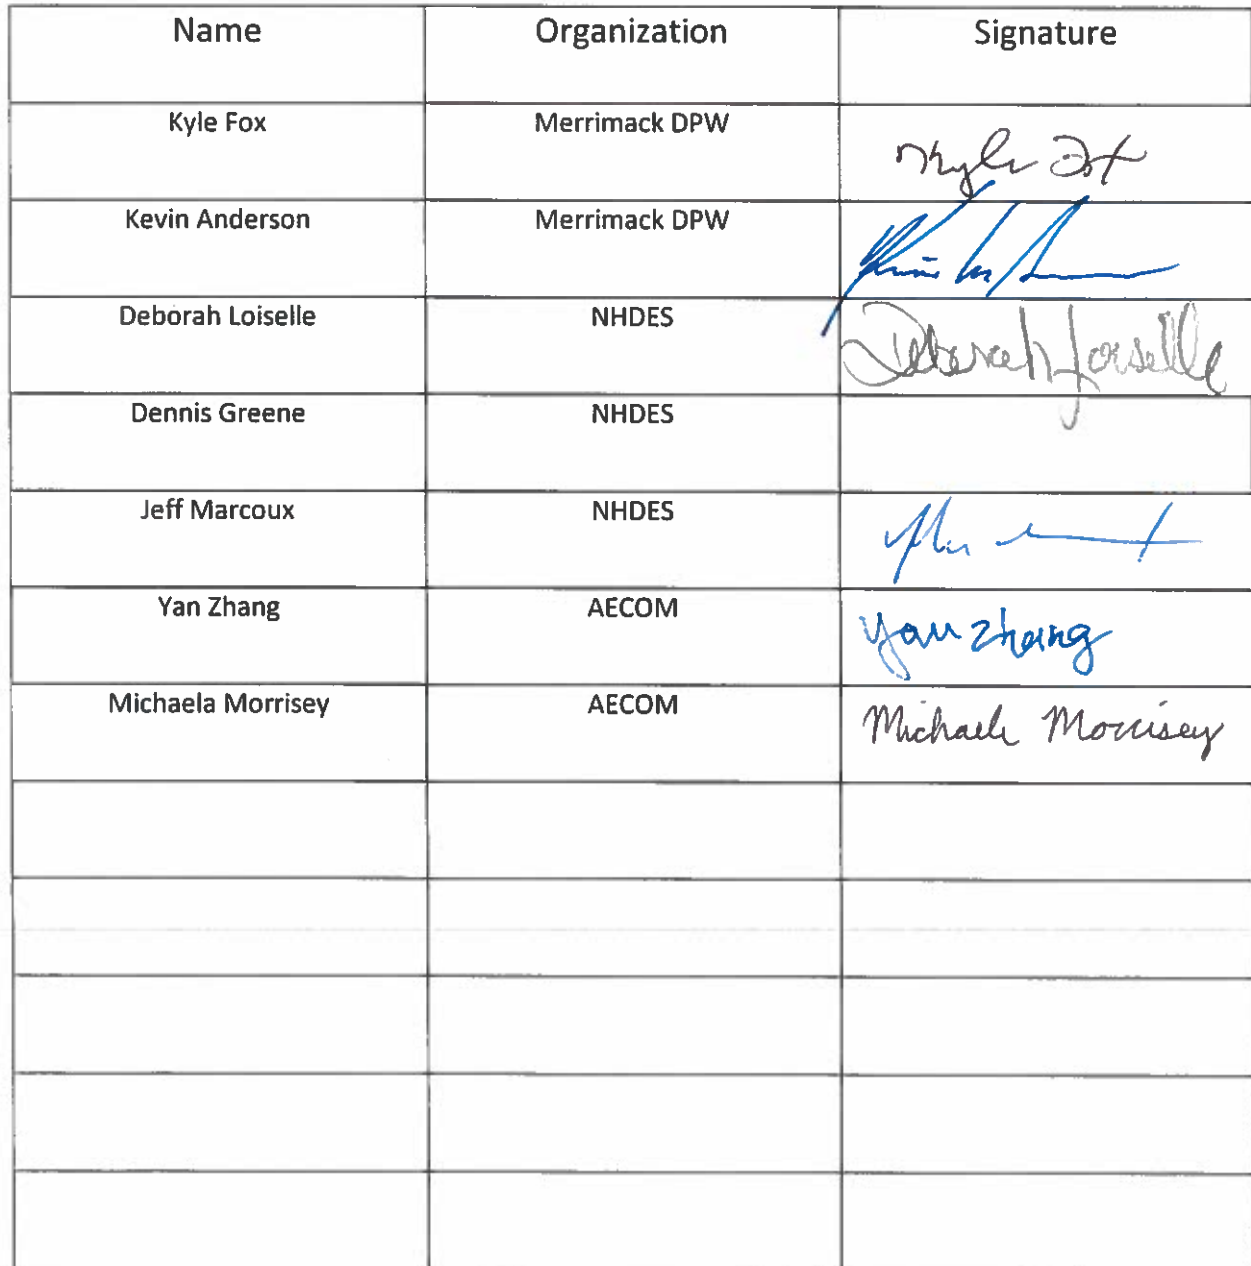 Name Organization Signature
Kyle Fox Merrimack DPW Kyle Fox
Kevin Anderson Merrimack DPW
Deborah Loiselle NHDES Deborah Loiselle
Dennis Greene NHDES
Jeff Marcoux NHDES
Yan Zhang AECOM Yan Zhang
Michaela Morrisey AECOM Michaela Morrisey